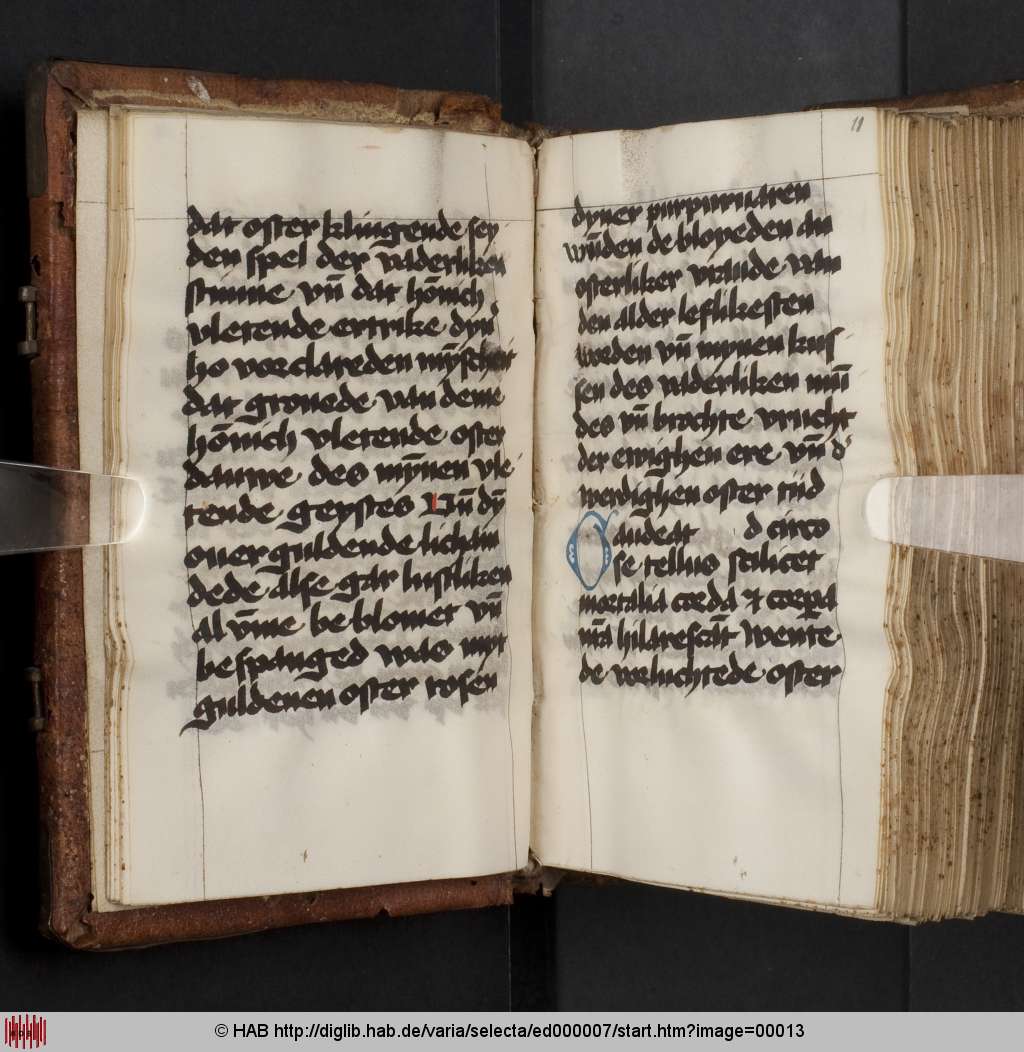 dat oster klingende sey
den spel der vaderliken
stimme vn̄ dat hōnich
vletende ertrike dyn̄
ho vorclareden mȳscheit
dat grouede van deme
hōnich vletende oster
dauwe des mȳnen vle
tende geystes Un̄ dȳ
ouer guldende licham
dede alse gar lustliken
al v̄me be blomet vn̄
be spanged was myt
guldenen oster rosen
11
dyner purpurvaren
wūden de bloyeden an
osterliker vraude van
den alder leflikesten
worden vn̄ mynen kus
sen des vaderliken mun̄
des vn̄ brochte vrucht
der ewighen ere vn̄ d'
werdighen oster tiid
Gaudeat d circo
se tellus scilicet
mortalia corda et corpora
nr̄a hilarescāt Wente
de vorluchtede oster
© HAB http://diglib.hab.de/varia/selecta/ed000007/start.htm?image=00013